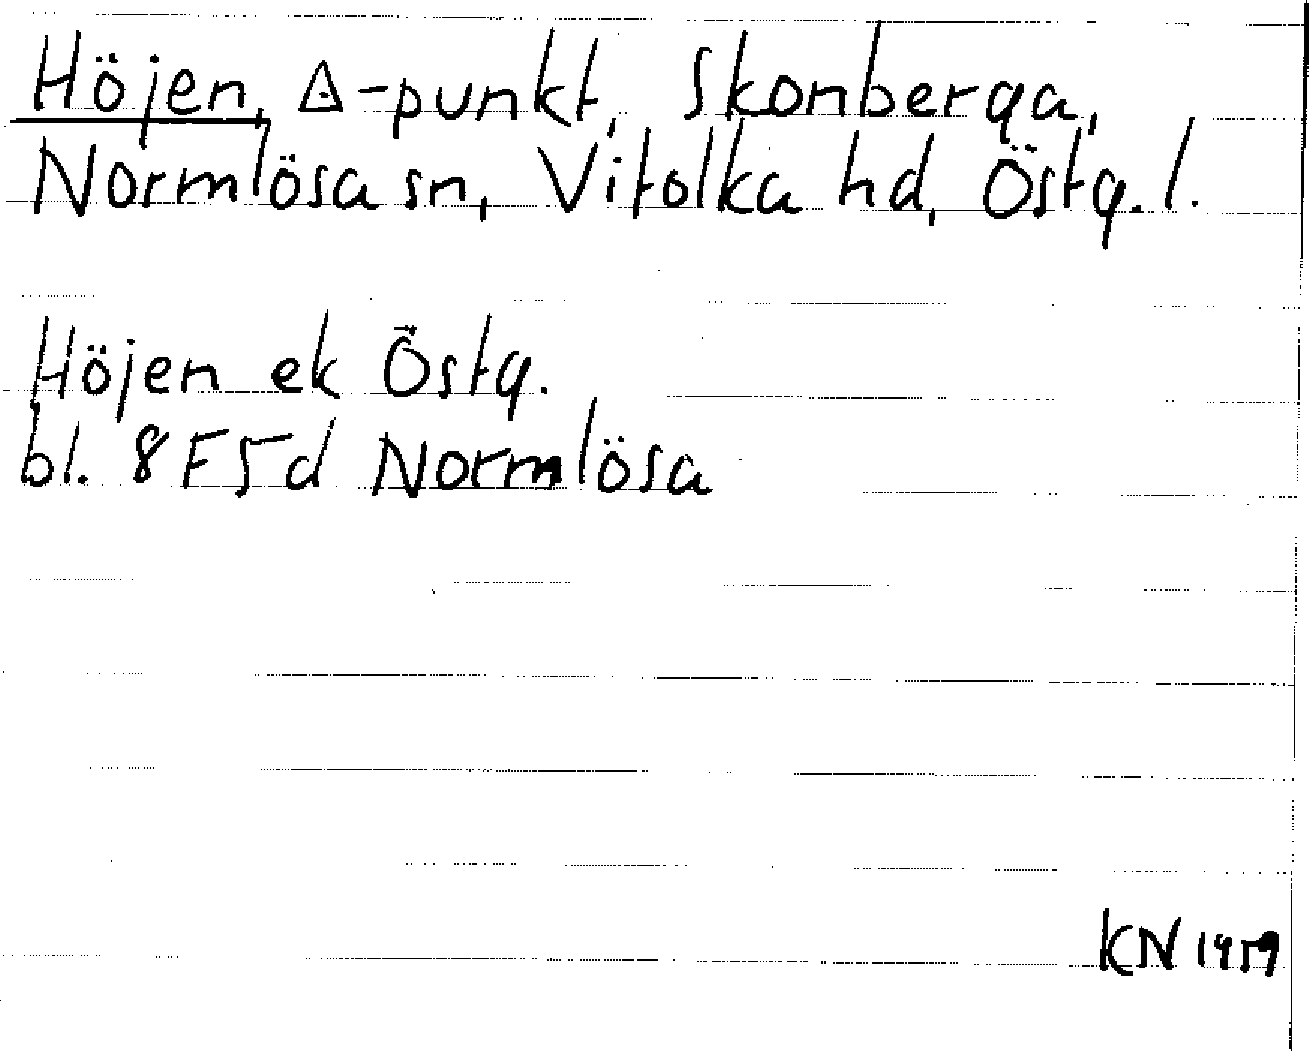 Höjen, △-punkt, Skonberga,
Normlösa sn, Vifolka hd, Östg. l.
Höjen ek Östg.
bl. 8F5d Normlösa
KN 1959